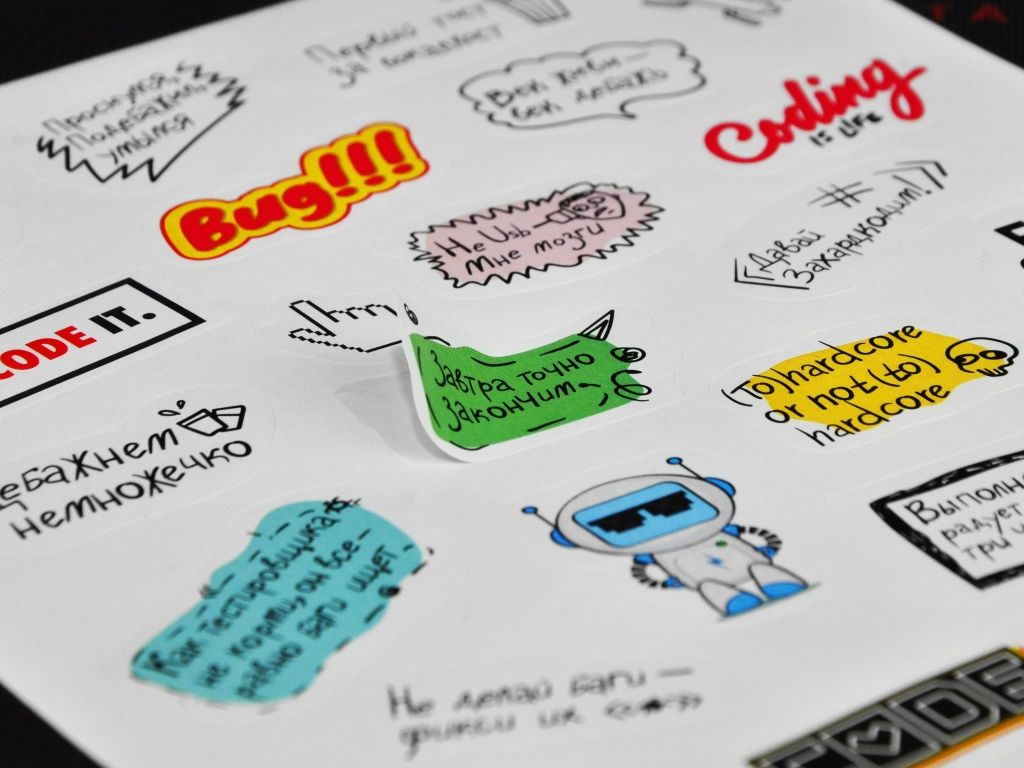 Проснулся,
Подебажил,
умылся
Первый тест
за
Bug!!!
Coding
is LiFe
Не Usb—
Мне мозги
#
Давай
Захардкодим!
CODE IT.
Завтра точно
Закончим
(To)hardcore
or not(to)
hardcore
немножечко
Как тестировщика
не корми, он все-
равно баги ищет
Выполн
радует
три
Не делай баги —
фикси их